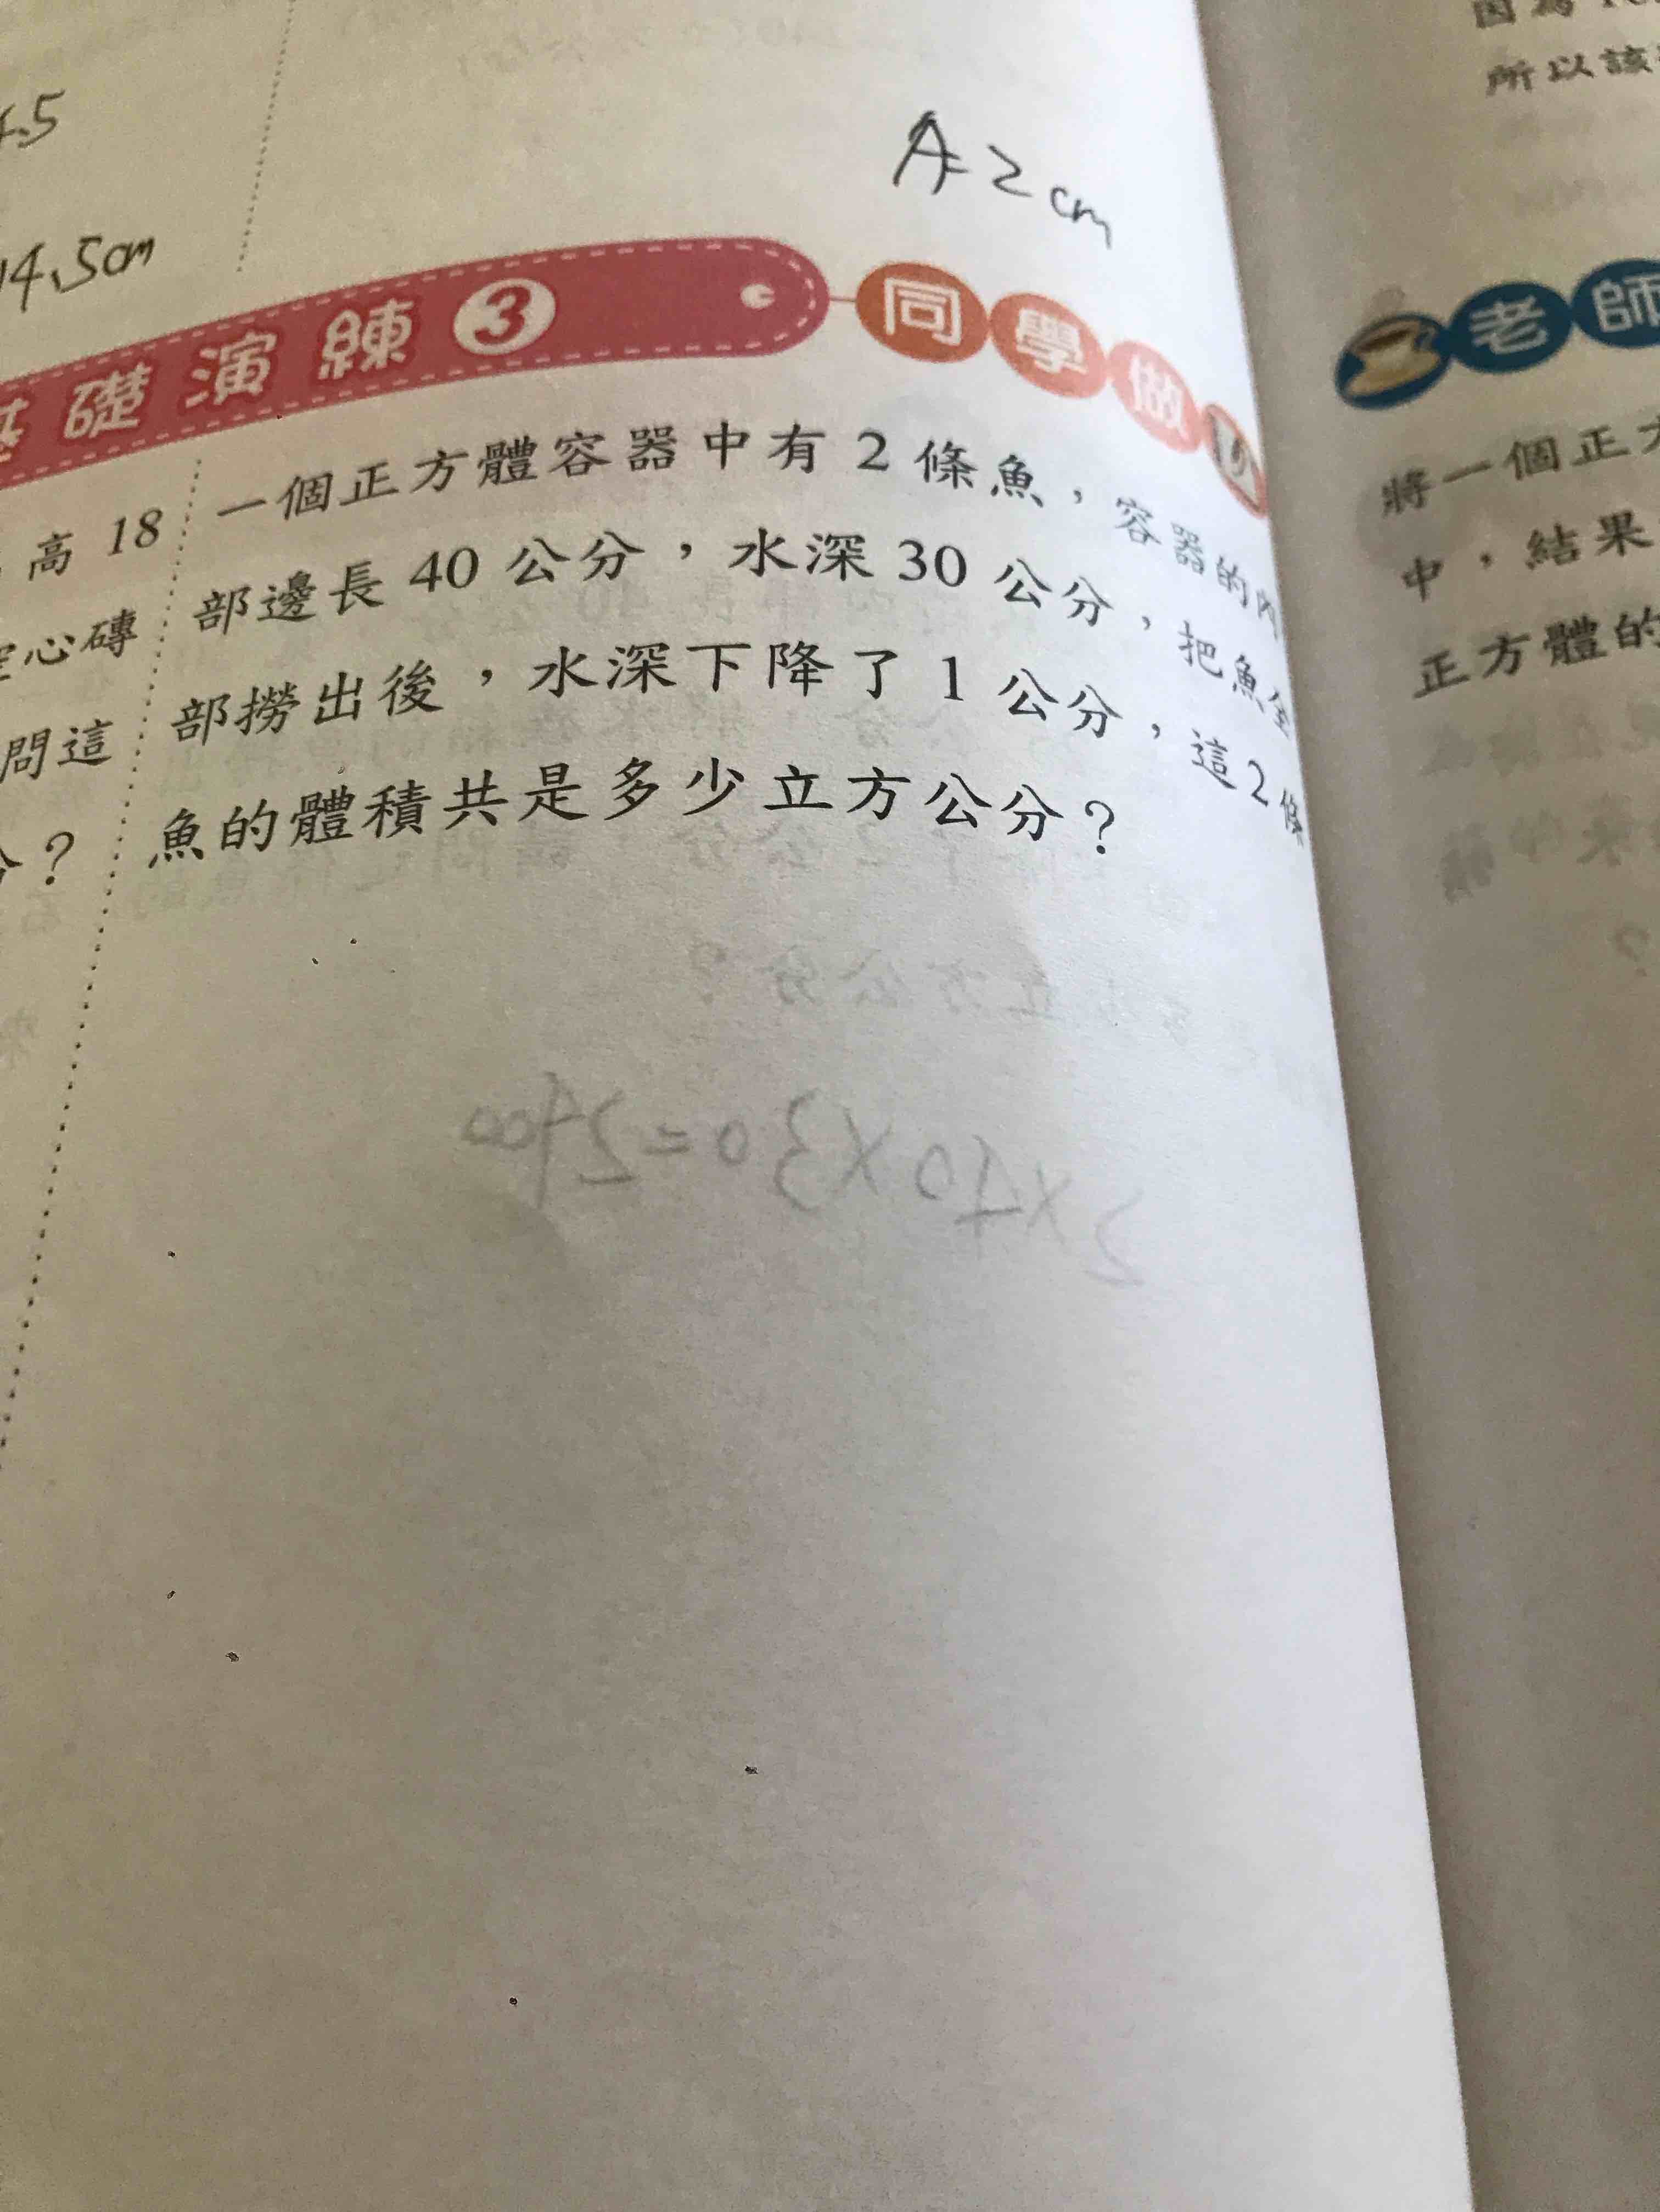 4.5
A=2cm
14.5cm
基礎演練3
同學做
一個正方體容器中有2條魚，容器的內
部邊長40公分，水深30公分，把魚全
部撈出後，水深下降了1公分，這2條
魚的體積共是多少立方公分？
高18
空心磚
問這
分？
2×40×30=2400
因為
所以該
老師
將一個正方
中，結果
正方體的